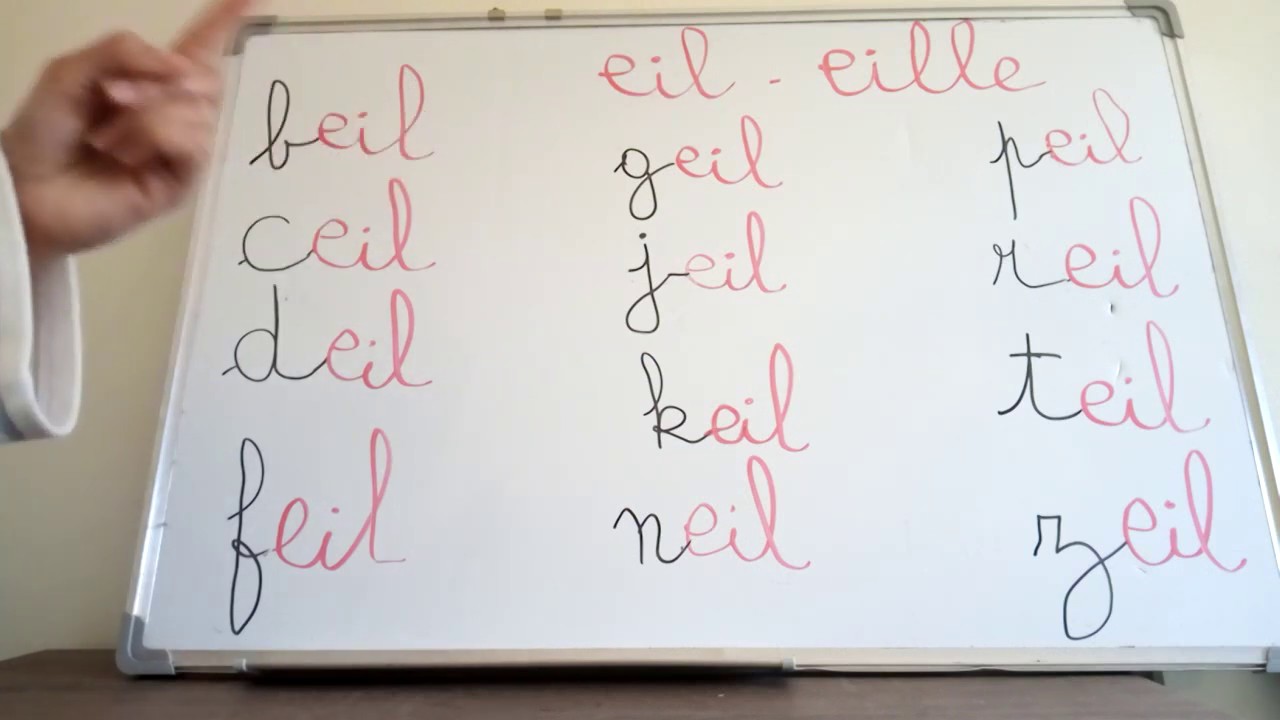 eil - eille
beil
ceil
deil
feil
geil
jeil
keil
neil
peil
reil
teil
zeil